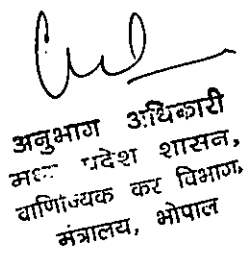 अनुभाग अधिकारी
प्रदेश शासन,
वाणिज्यिक कर विभाग,
मंत्रालय, भोपाल